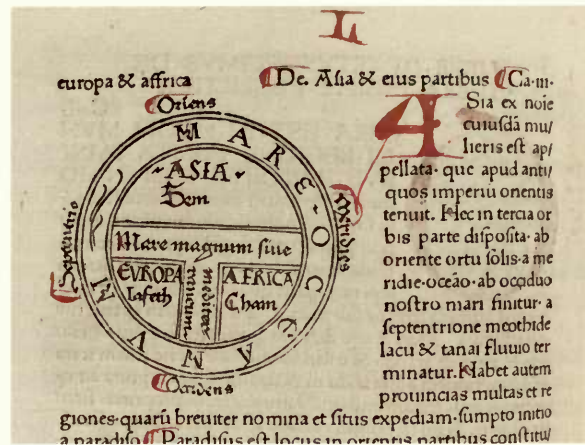 L
europa & affrica
De. Asia & eius partibus Ca·iii·
Oriens
MARE·OCEANVM
ASIA
Sem
Mare magnum siue
mediterraneum
EVROPA
Iafeth
AFRICA
Cham
Septentrio
Meridies
Occidens
ASia ex noie
cuiusdā mu/
lieris est ap/
pellata· que apud anti/
quos imperiū orientis
tenuit. Hec in tercia or
bis parte disposita· ab
oriente ortu solis·a me
ridie·oceāo·ab occiduo
nostro mari finitur· a
septentrione meothide
lacu & tanai fluuio ter
minatur. Habet autem
prouincias multas et re
giones·quarū breuiter nomina et situs expediam·sumpto initio
a paradiso Paradisus est locus in orientis partibus constitu/